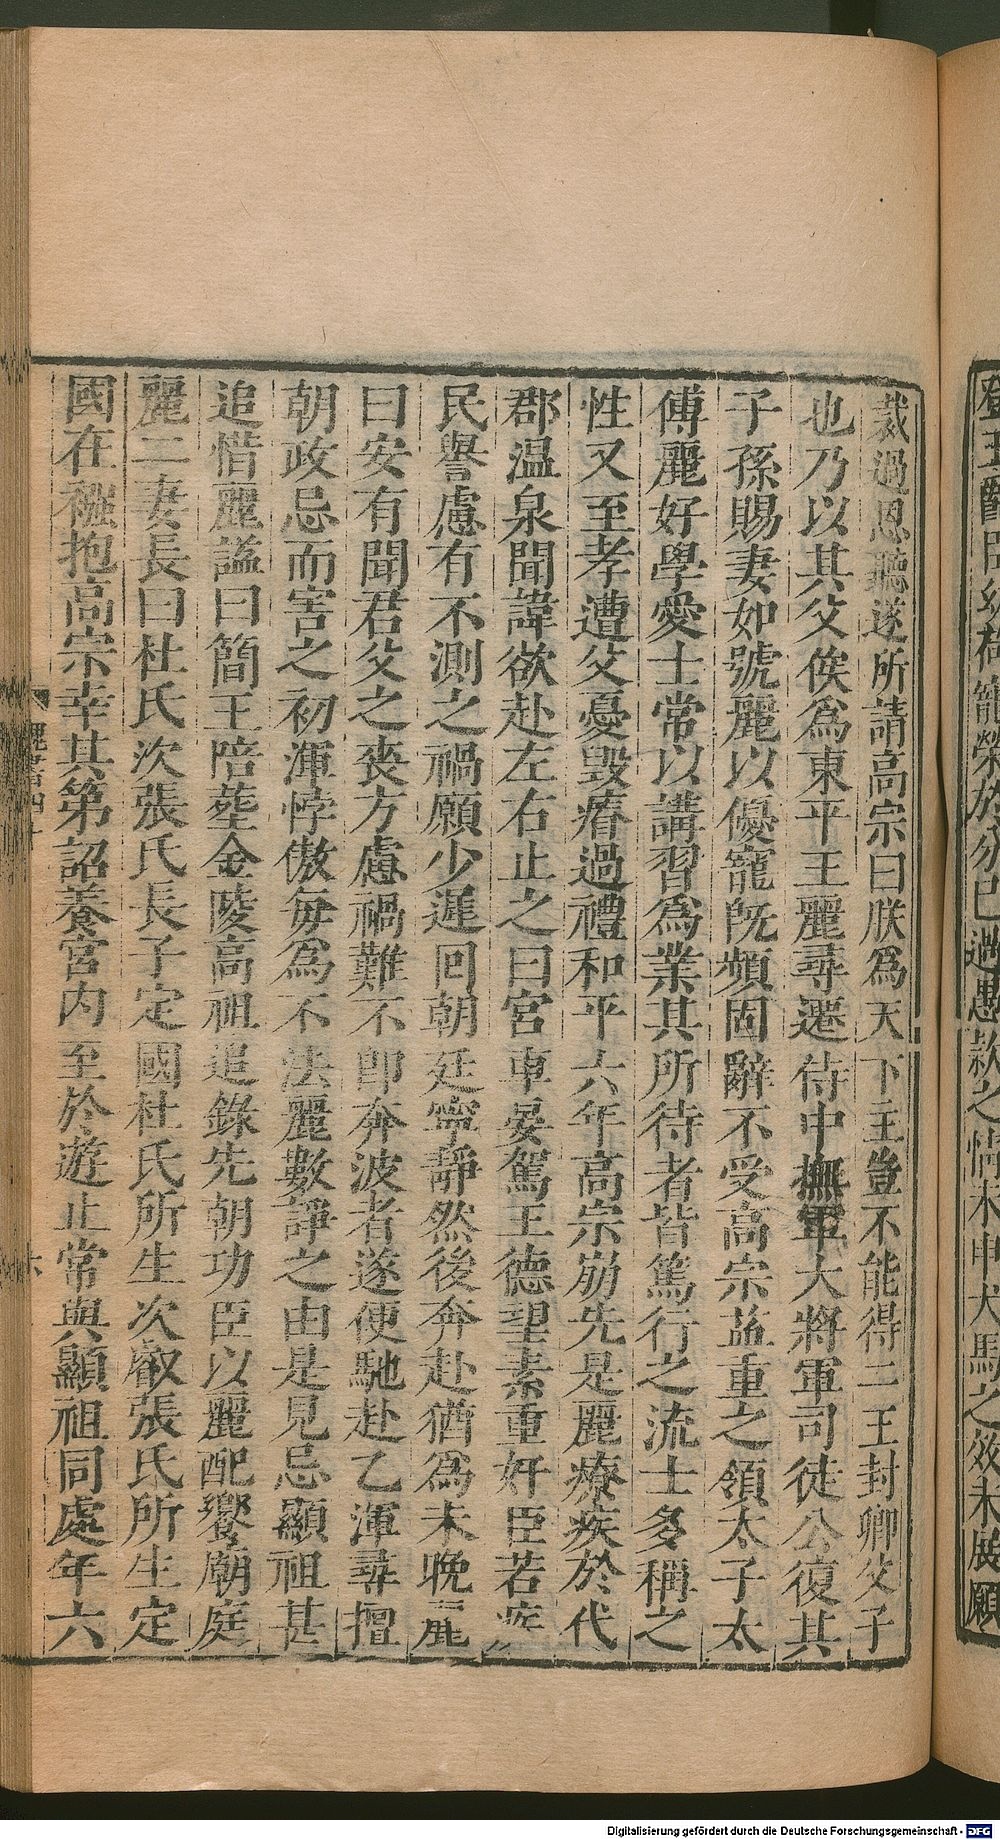 裁過恩聽遂所請高宗曰朕為天下主豈不能得二王封卿父子
也乃以其父俟為東平王麗尋遷侍中撫軍大將軍司徒公復其
子孫賜妻如號麗以優寵既頻固辭不受高宗益重之領太子太
傅麗好學愛士常以講習為業其所待者皆篤行之流士多稱之
性又至孝遭父憂毀瘠過禮和平六年高宗崩先是麗療疾於代
郡温泉聞諱欲赴左右止之曰宮車晏駕王德望素重奸臣若疾
民譽慮有不測之禍願少遲回朝廷寧靜然後奔赴猶為未晚麗
曰安有聞君父之喪方慮禍難不即奔波者遂便馳赴乙渾尋擅
朝政忌而害之初渾悖傲每為不法麗數諍之由是見忌顯祖甚
追惜麗謚曰簡王陪葬金陵高祖追錄先朝功臣以麗配饗廟庭
麗二妻長曰杜氏次張氏長子定國杜氏所生次叡張氏所生定
國在襁抱高宗幸其第詔養宮内至於遊止常與顯祖同處年六
寵榮於分已過愚款之情未申犬馬之效未展願
Digitalisierung gefördert durch die Deutsche Forschungsgemeinschaft - DFG